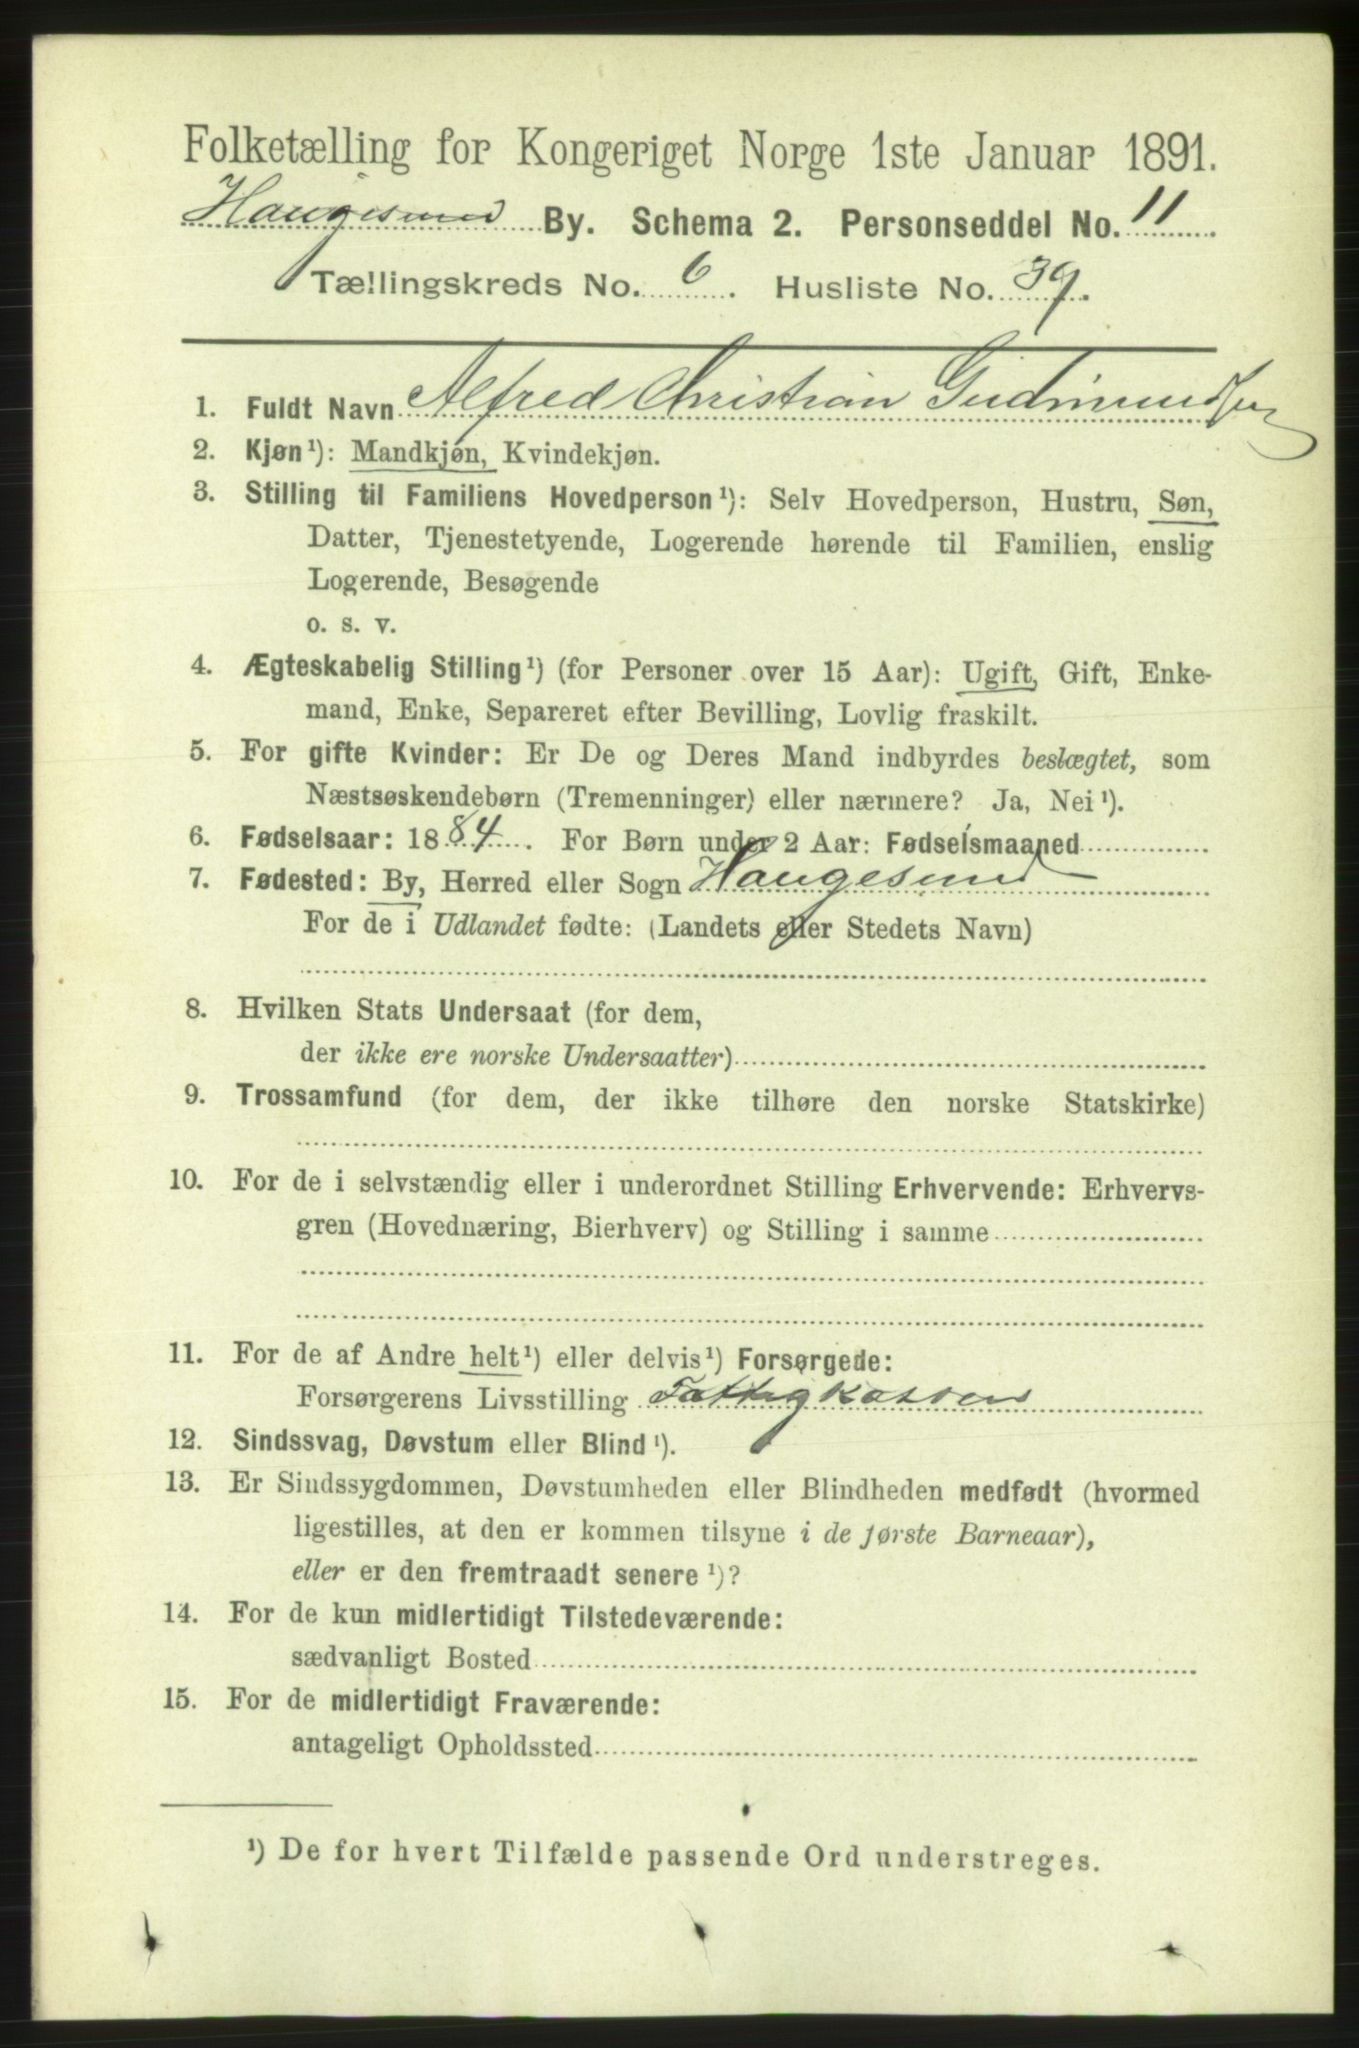 Folketælling for Kongeriget Norge 1ste Januar 1891.
Haugesund By. Schema 2. Personseddel No. 11
Tællingskreds No. 6. Husliste No. 39.
1. Fuldt Navn Alfred Christian Gudmundsen
2. Kjøn¹): Mandkjøn, Kvindekjøn.
3. Stilling til Familiens Hovedperson¹): Selv Hovedperson, Hustru, Søn,
Datter, Tjenestetyende, Logerende hørende til Familien, enslig
Logerende, Besøgende
o. s. v.
4. Ægteskabelig Stilling¹) (for Personer over 15 Aar): Ugift, Gift, Enke-
mand, Enke, Separeret efter Bevilling, Lovlig fraskilt.
5. For gifte Kvinder: Er De og Deres Mand indbyrdes beslægtet, som
Næstsøskendebørn (Tremenninger) eller nærmere? Ja, Nei¹).
6. Fødselsaar: 1884. For Børn under 2 Aar: Fødselsmaaned
7. Fødested: By, Herred eller Sogn Haugesund
For de i Udlandet fødte: (Landets eller Stedets Navn)
8. Hvilken Stats Undersaat (for dem,
der ikke ere norske Undersaatter)
9. Trossamfund (for dem, der ikke tilhøre den norske Statskirke)
10. For de i selvstændig eller i underordnet Stilling Erhvervende: Erhvervs-
gren (Hovednæring, Bierhverv) og Stilling i samme
11. For de af Andre helt¹) eller delvis¹) Forsørgede:
Forsørgerens Livsstilling Fattigkassen
12. Sindssvag, Døvstum eller Blind¹).
13. Er Sindssygdommen, Døvstumheden eller Blindheden medfødt (hvormed
ligestilles, at den er kommen tilsyne i de første Barneaar),
eller er den fremtraadt senere¹)?
14. For de kun midlertidigt Tilstedeværende:
sædvanligt Bosted
15. For de midlertidigt Fraværende:
antageligt Opholdssted
¹) De for hvert Tilfælde passende Ord understreges.